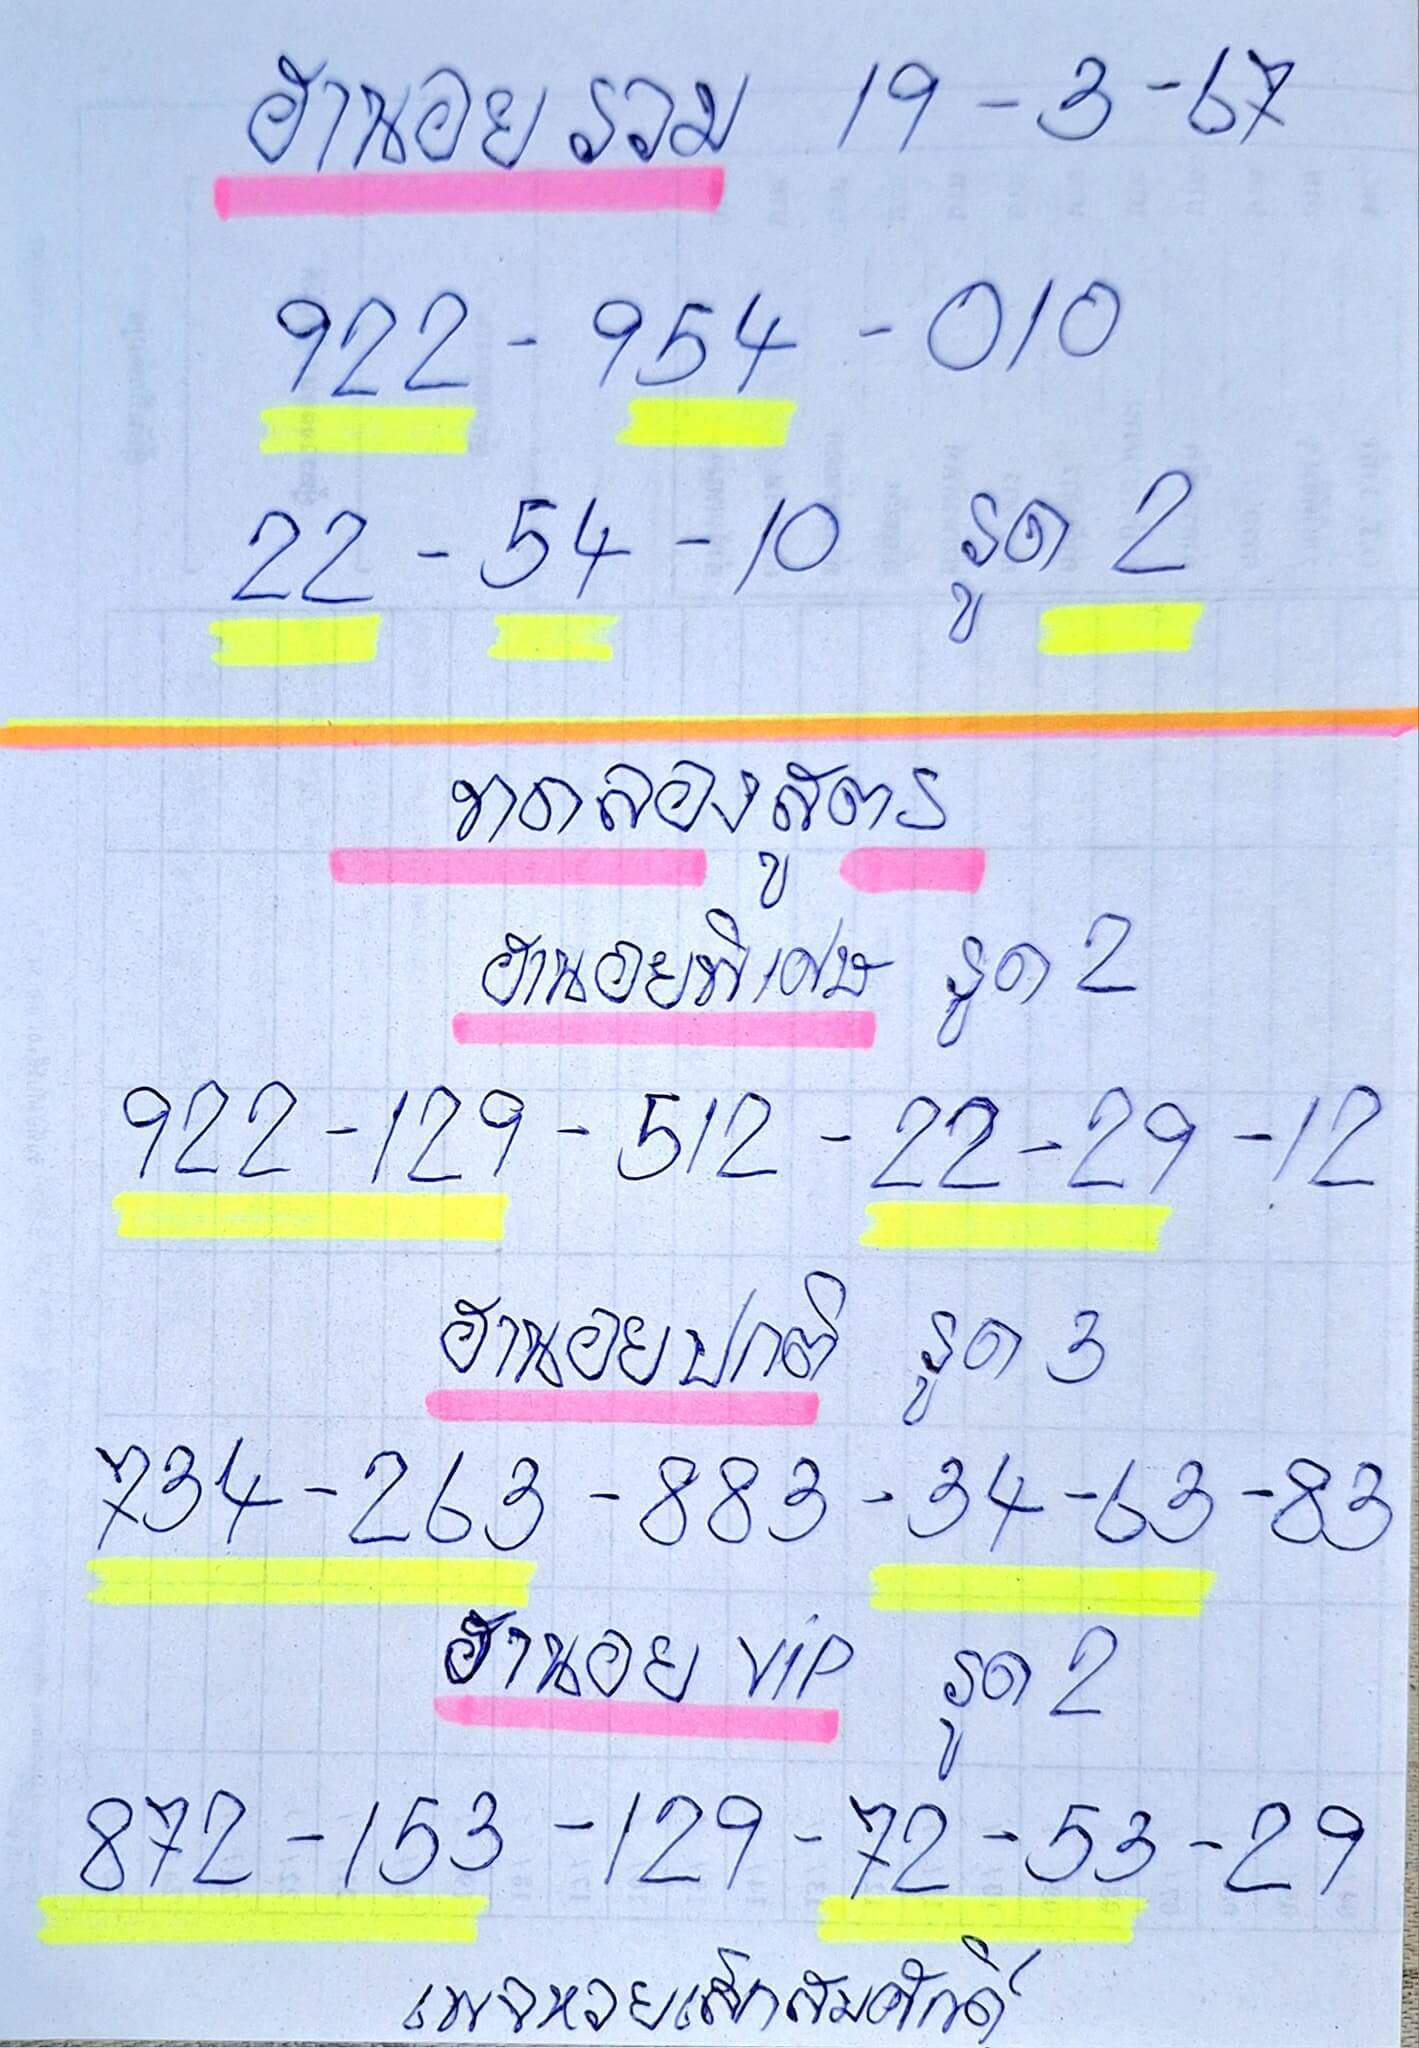 ฮานอยรวม 19-3-67
922-954-010
22-54-10 รูด 2
ทดลองสูตร
ฮานอยพิเศษ รูด 2
922-129-512-22-29-12
ฮานอยปกติ รูด 3
734-263-883-34-63-83
ฮานอย VIP รูด 2
872-153-129-72-53-29
เพจหวยเล็กสมศักดิ์